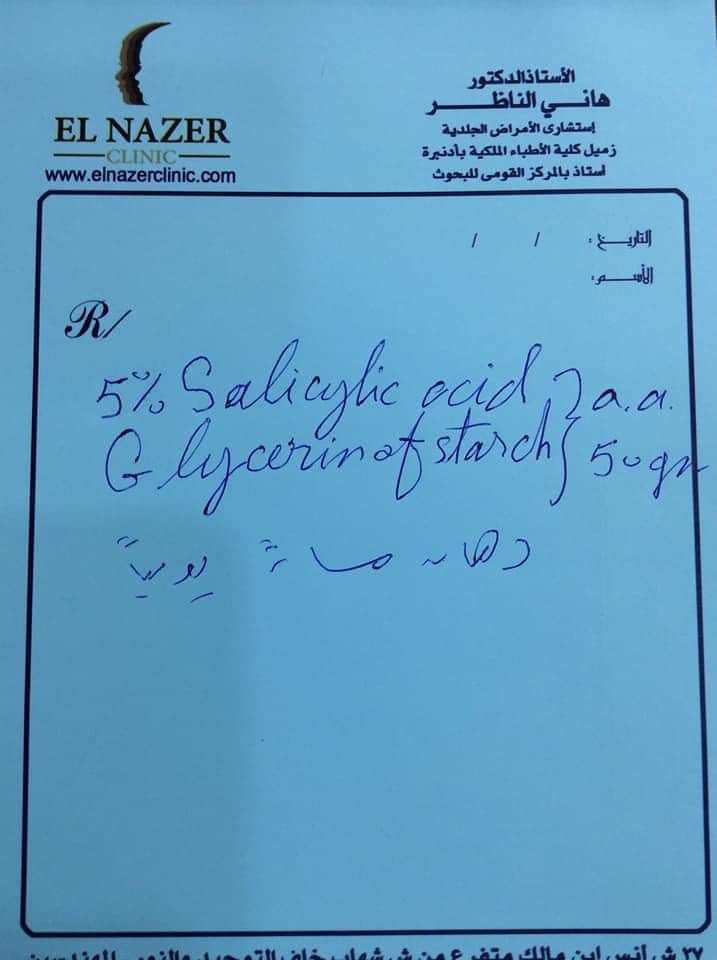 EL NAZER
CLINIC
www.elnazerclinic.com
الأستاذ الدكتور
هاني الناظر
إستشارى الأمراض الجلدية
زميل كلية الأطباء الملكية بأدنبرة
أستاذ بالمركز القومى للبحوث
التاريخ : / /
الأسم :
R/
5% Salicylic acid } a.a.
Glycerin of starch } 50 gr
دهان مساءً يومياً
٢٧ ش أنس ابن مالك متفرع من ش شهاب خلف التوحيد والنور المهندسين